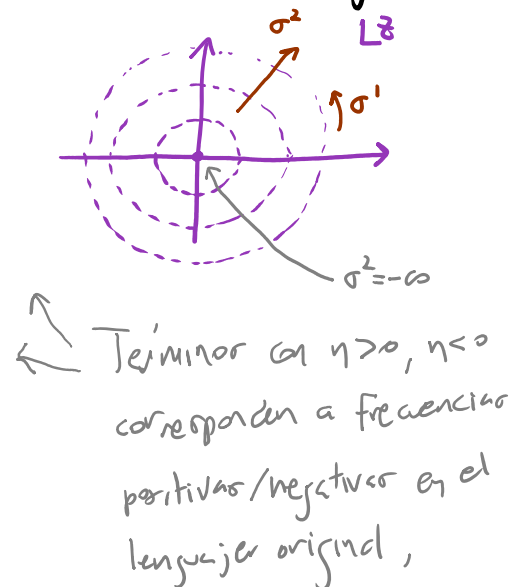 σ²
z
σ¹
σ²=-∞
Términos con n>0, n<0
corresponden a frecuencias
positivas/negativas en el
lenguajes original,